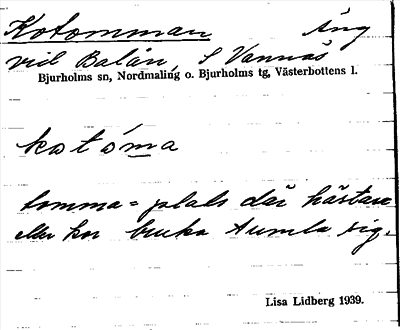 Kotomman Äng
vid Balån, S Vännäs
Bjurholms sn, Nordmaling o. Bjurholms tg, Västerbottens l.
kotóma
tomma = plats där hästar
eller kor bruka tumla sig.
Lisa Lidberg 1939.